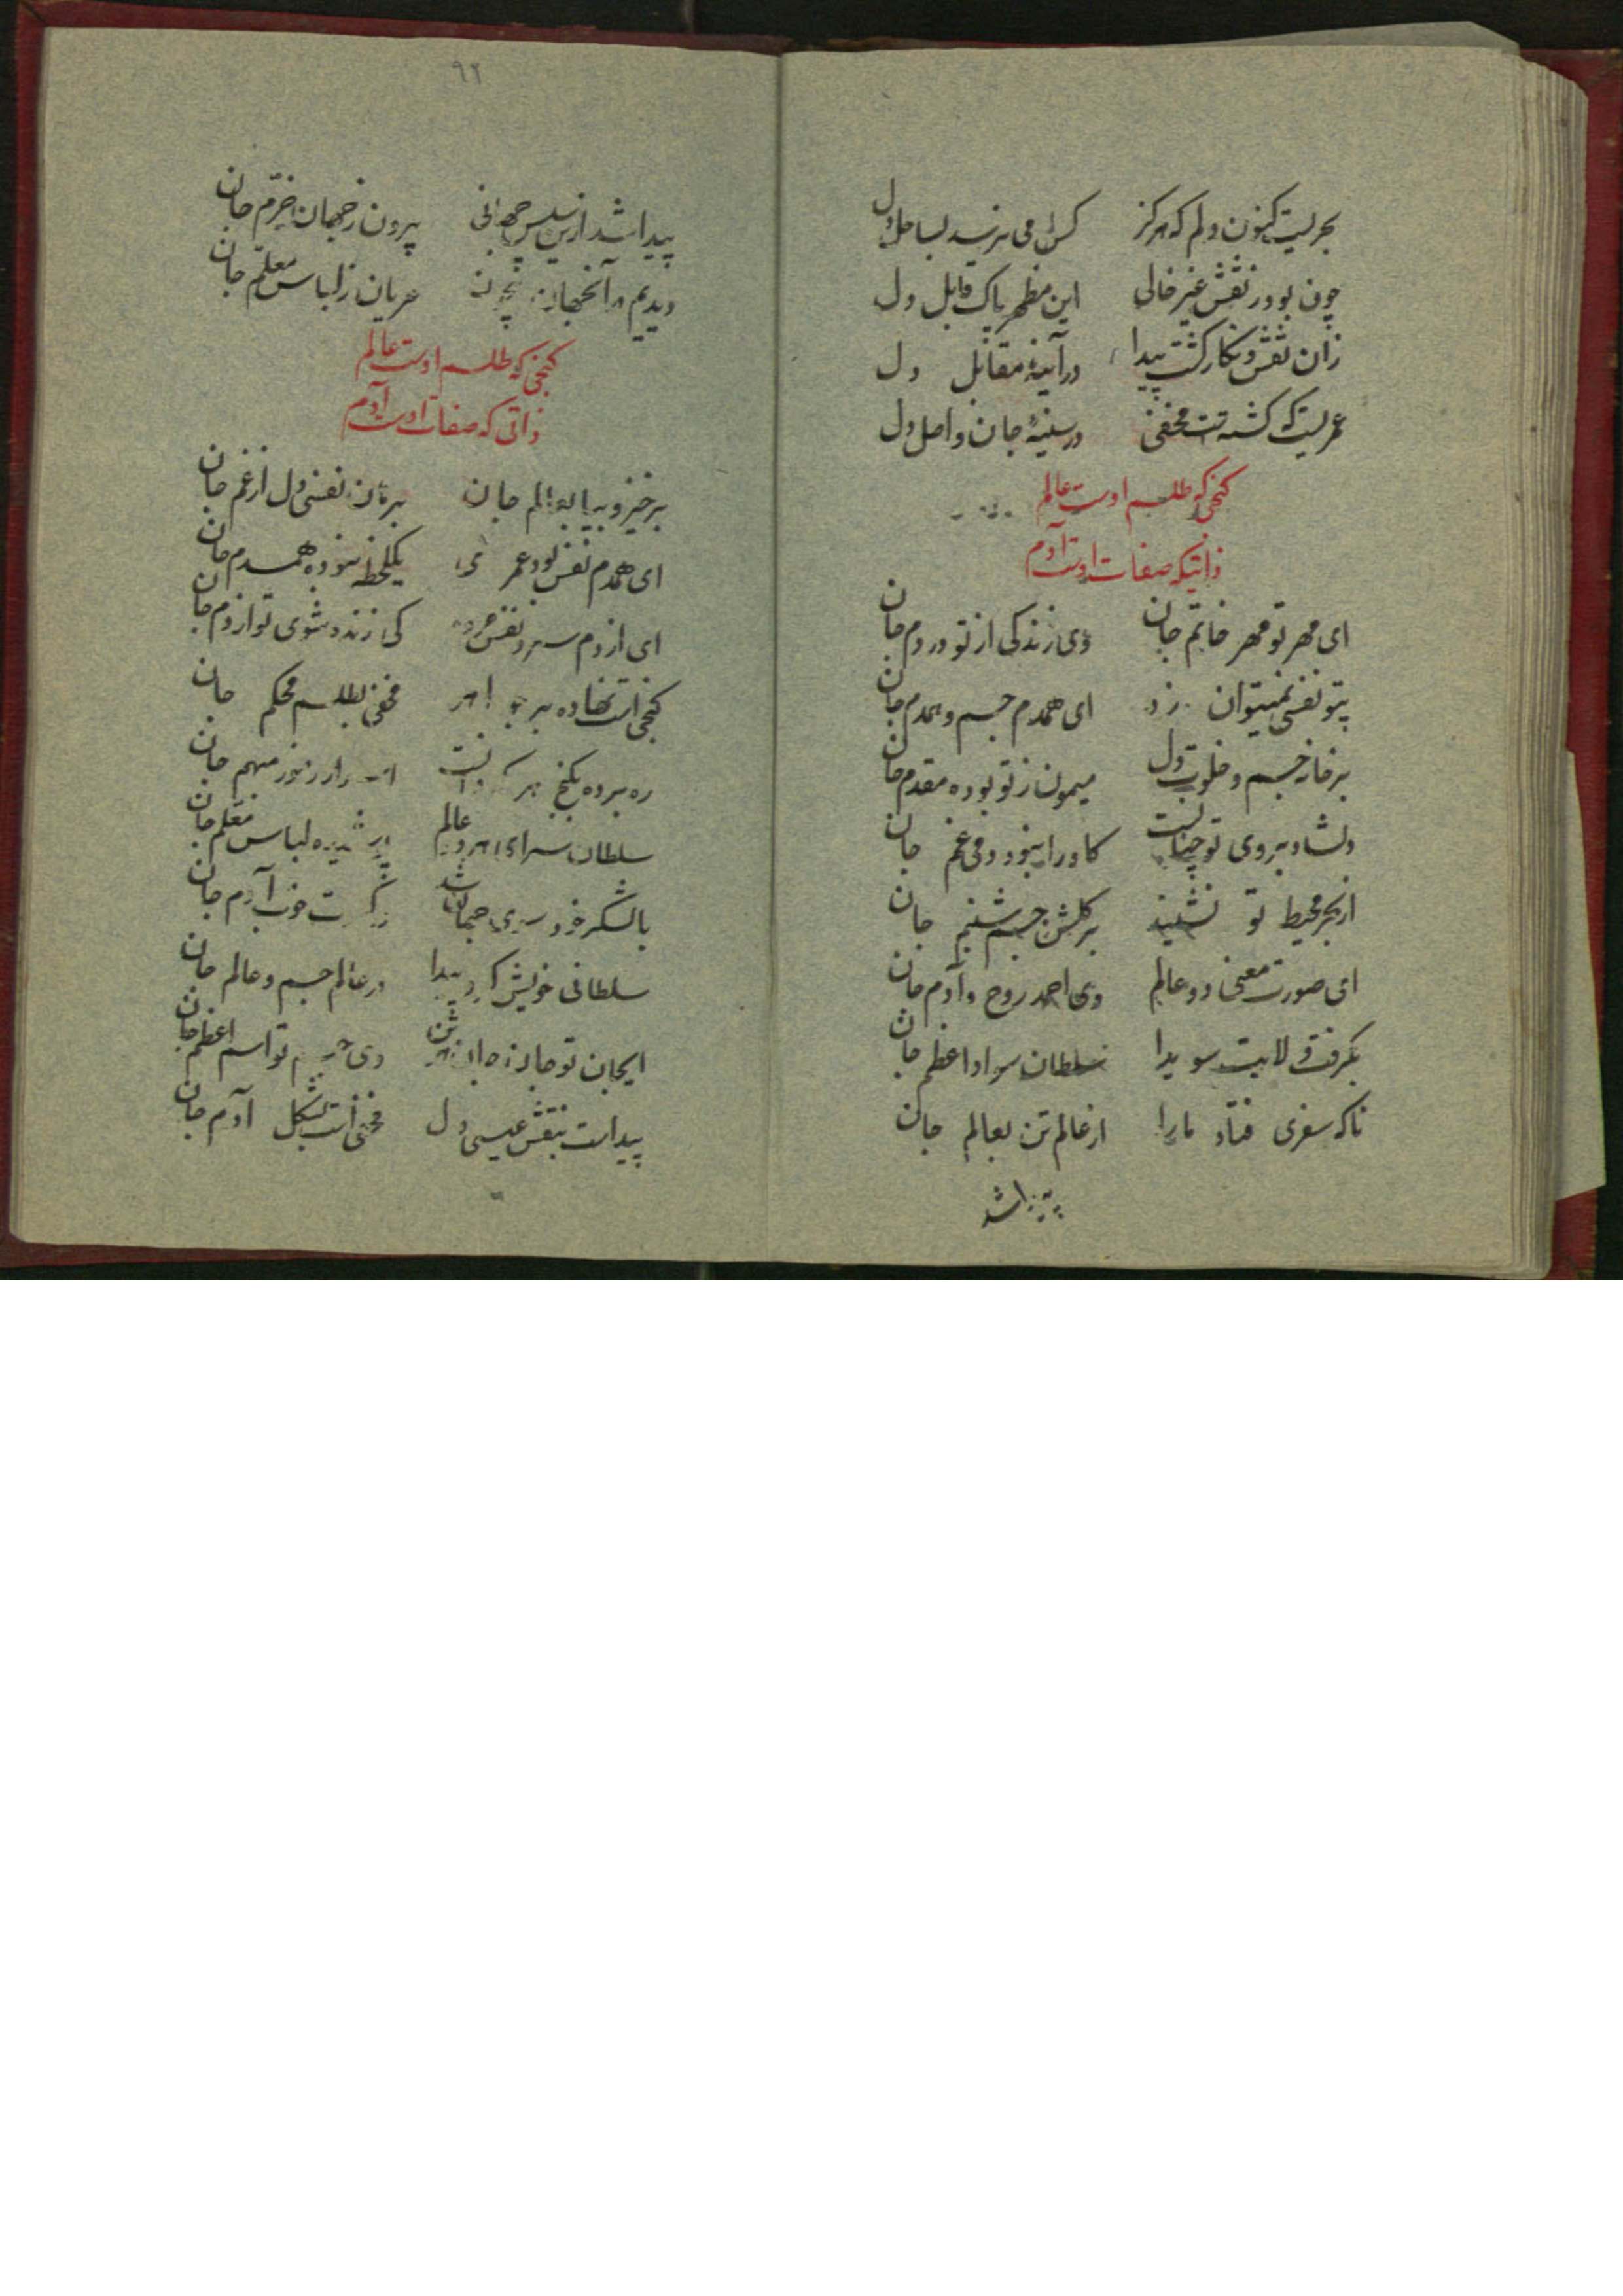 بحریست کنون دلم که هرگز کس می نرسد بساحل دل
چون بود ز نقش غیر خالی این مظهر پاک قابل دل
زان نقش و نگار گشت پیدا در آینهٔ مقابل دل
عمریست که گشته است مخفی در سینهٔ جان و اصل دل
گنجی که طلسم اوست عالم
ذاتیکه صفات اوست آدم
ای مهر تو مهر خاتم جان وی زندگی از تو در دم جان
بیتو نفسی نمیتوان زد ای همدم جسم و همدم جان
بر خانه جسم و خلوت دل میمون ز تو بوده مقدم جان
دلشاد بروی تو چنانست کاو را نبود دمی غم جان
از بحر محیط تو نشیند بر گلشن جسم شبنم جان
ای صورت معنی دو عالم وی احمد روح و آدم جان
بگرفت ولایت سویدا سلطان سواد اعظم جان
ناگه سفری فتاد ما را از عالم تن بعالم جان
۹۲
پیدا شد ازین سپس جهانی بیرون ز جهان خرم جان
دیدیم در آنجهان عریان ز لباس معلم جان
گنجی که طلسم اوست عالم
ذاتی که صفات اوست آدم
برخیز و بیا بعالم جان برهان نفسی دل از غم جان
ای همدم نفس بود عمری یکلحظه نبوده همدم جان
ای از دم سرد نفس مرده کی زنده شوی تو از دم جان
گنجی است نهاده مخفی بطلسم محکم جان
ره برده بگنج هر که جان
سلطان سرای هر دو عالم پوشیده لباس معلم جان
با لشکر خود سوی جهان شد آدم جان
سلطانی خویش کرد پیدا در عالم جسم و عالم جان
ایجان تو جان وی تو اسم اعظم جان
پیداست بنقش عیسی دل مخفی است بشکل آدم جان